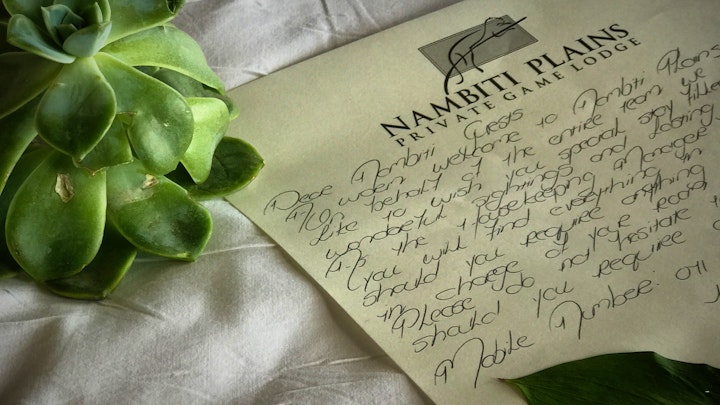 NAMBITI PLAINS
PRIVATE GAME LODGE
Dear Nambiti Guests
A warm welcome to Nambiti Plains
behalf of the entire team we
like to wish you special stay filled
wonderful sightings and lasting
As the Housekeeping Manager
you will find everything in
should you require anything
in charge of your room
Please do not hesitate to
should you require a
Mobile Number: 011